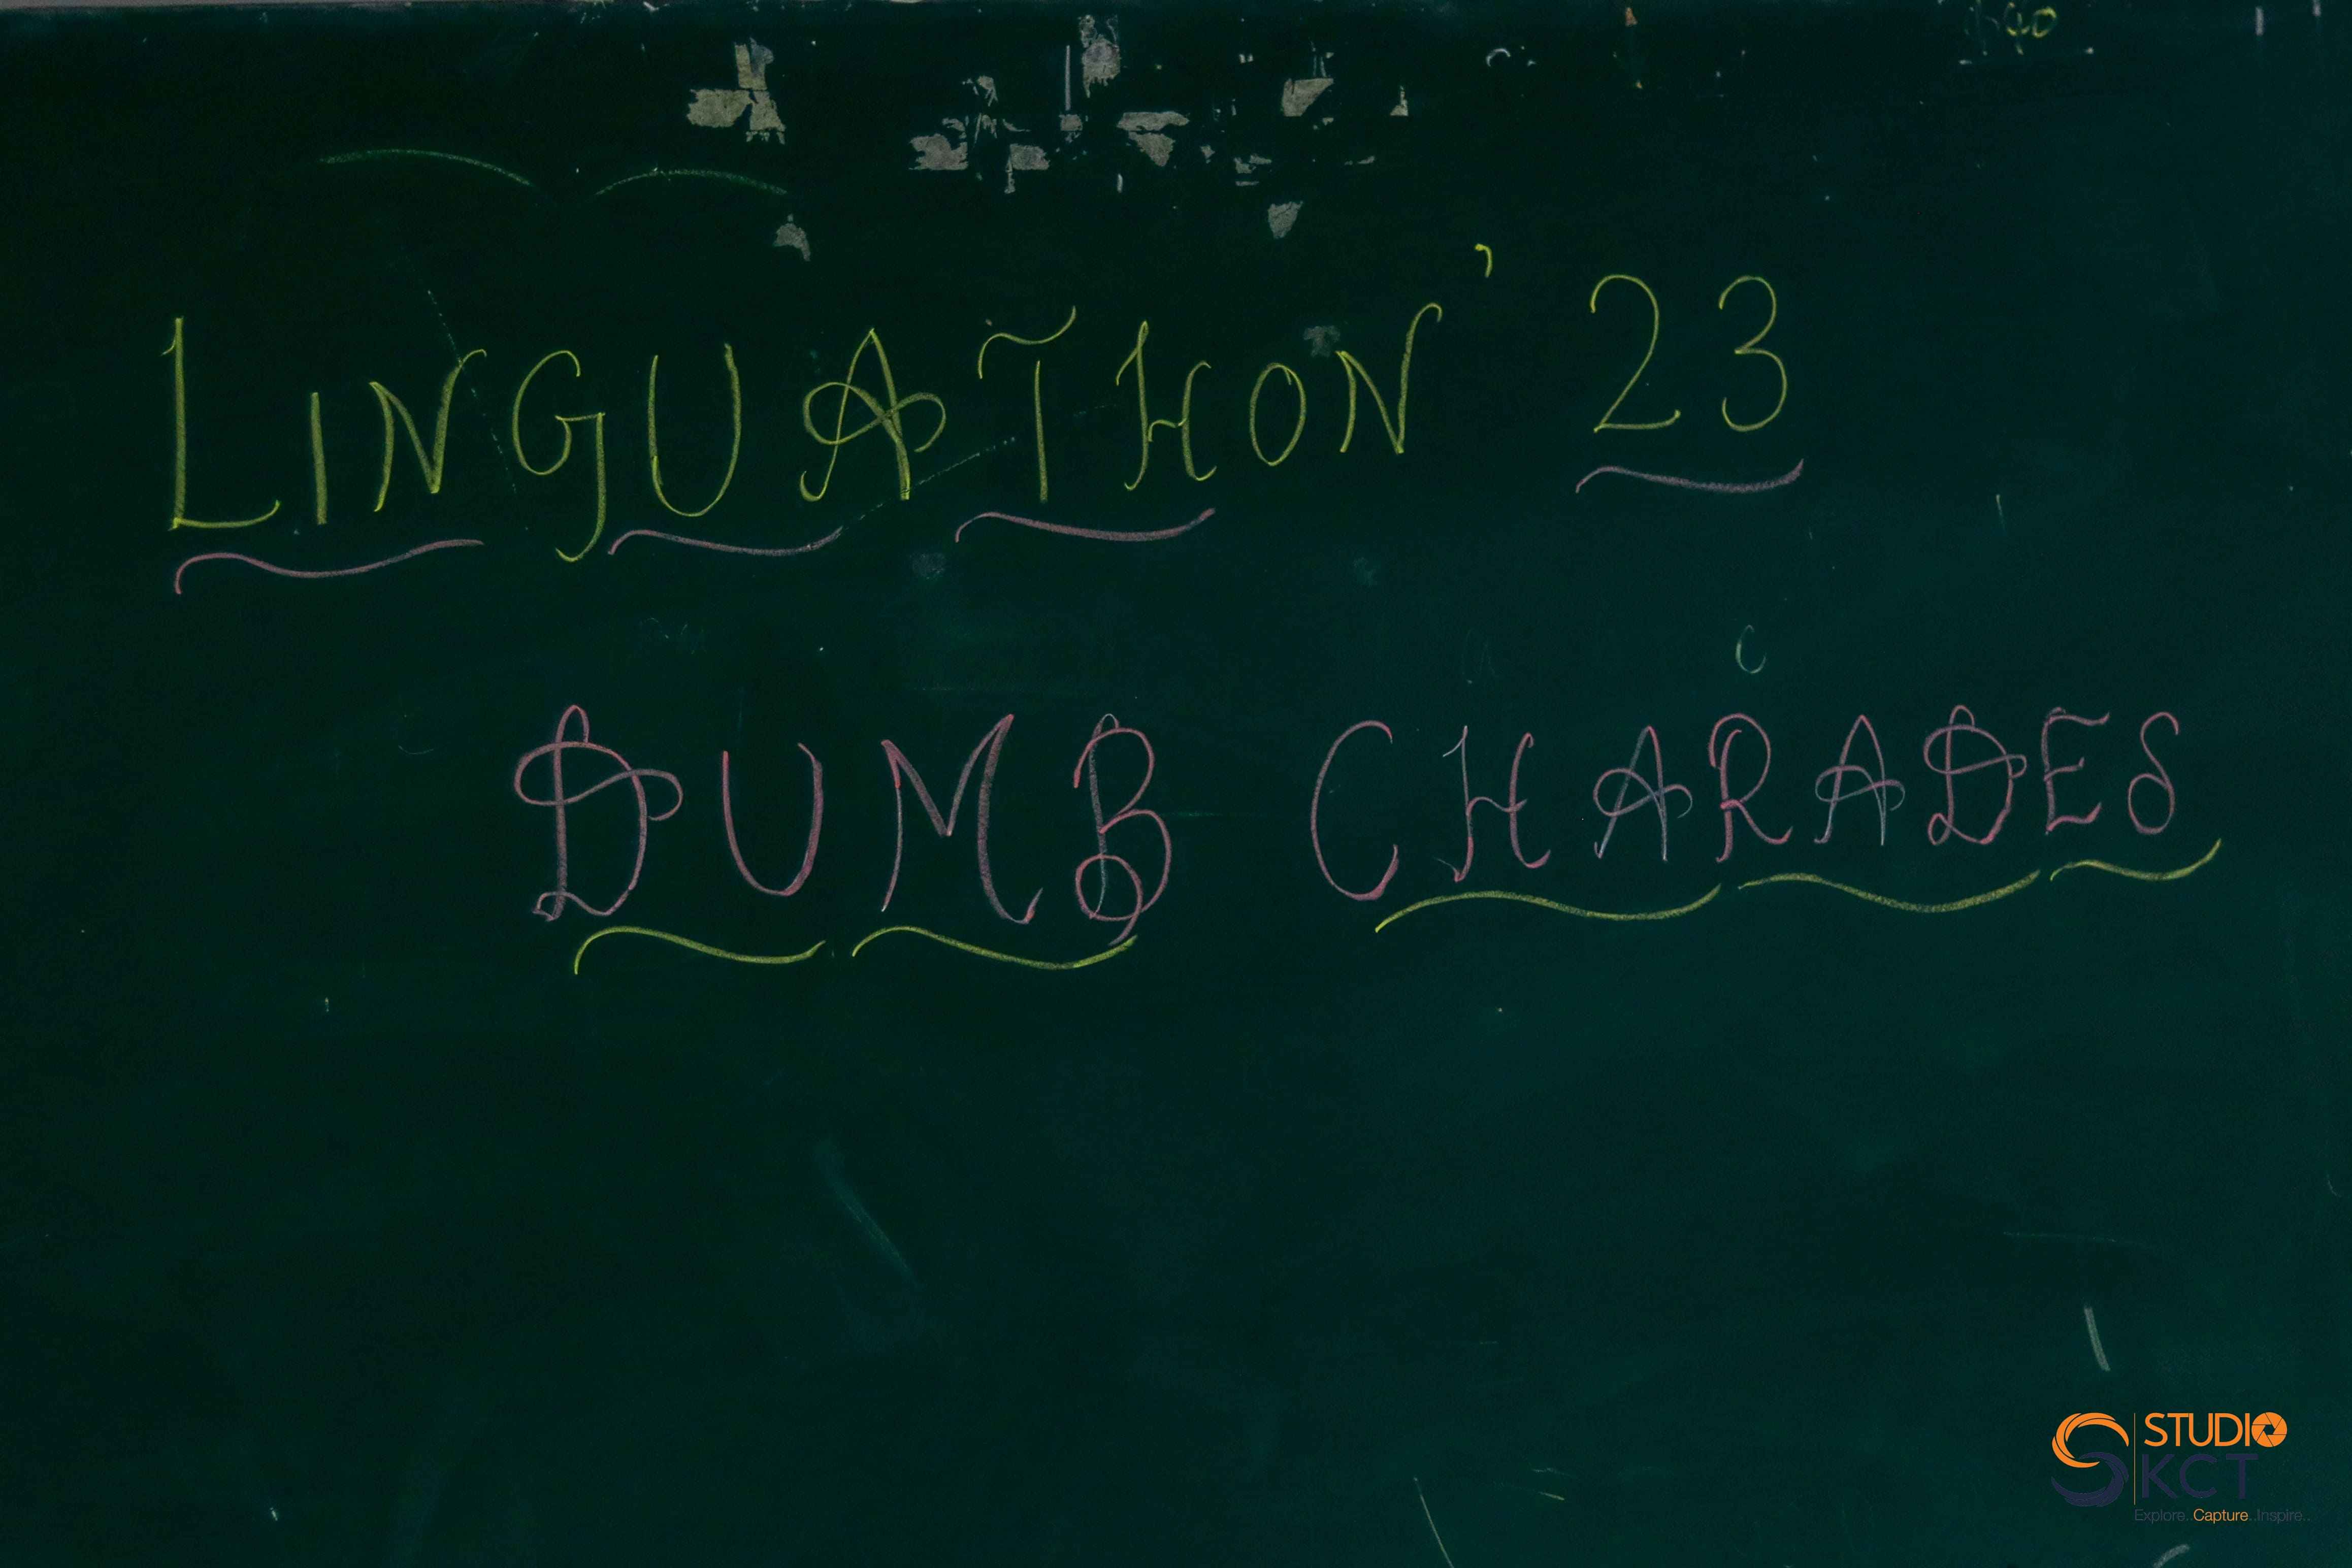 LINGUATHON' 23
DUMB CHARADES
STUDIO
KCT
Explore..Capture..Inspire..